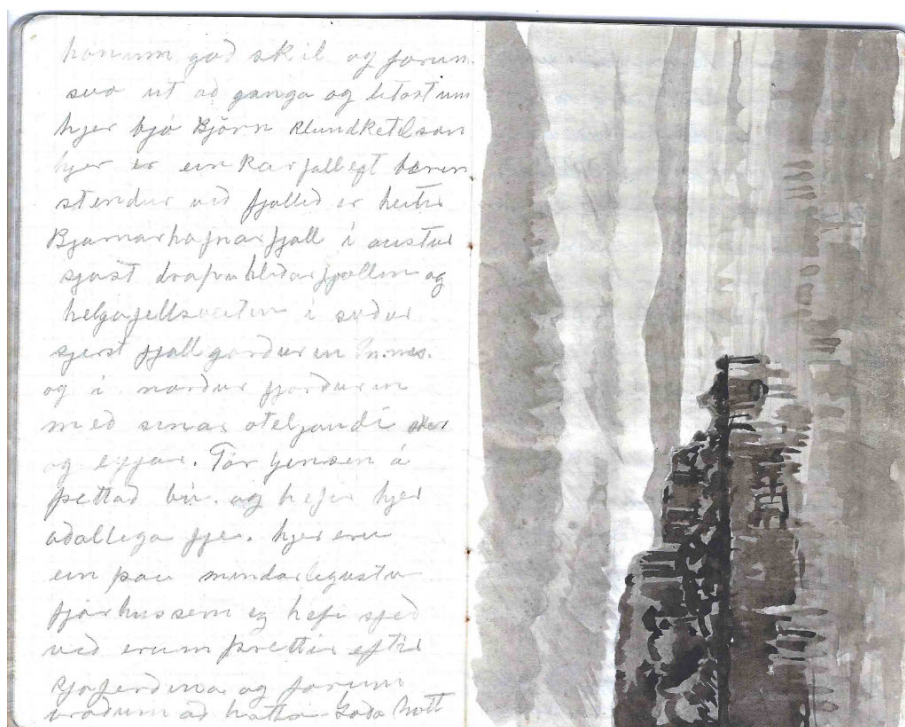 honum goð skil og forum
svo ut að ganga og litast um
hjer bjó Björn BlundKetilson
hjer er einkar fallegt bærin
stendur við fjallið er heitir
Bjarnarhafnarfjall i austur
sjást drapuhliðarfjallin og
helgafellssveitin i suður
sjest fjallgarðurin
og i norður fjorðurin
með sinar oteljandi sker
og eyjar. Tor Jensen á
þettað bú. og hefir hjer
aðallega fje. hjer eru
ein þau mindarlegustu
fjárhus sem eg hefi sjeð
við erum þrettir eftir
sjoferðina og forum
braðum að hatta Goða Nott